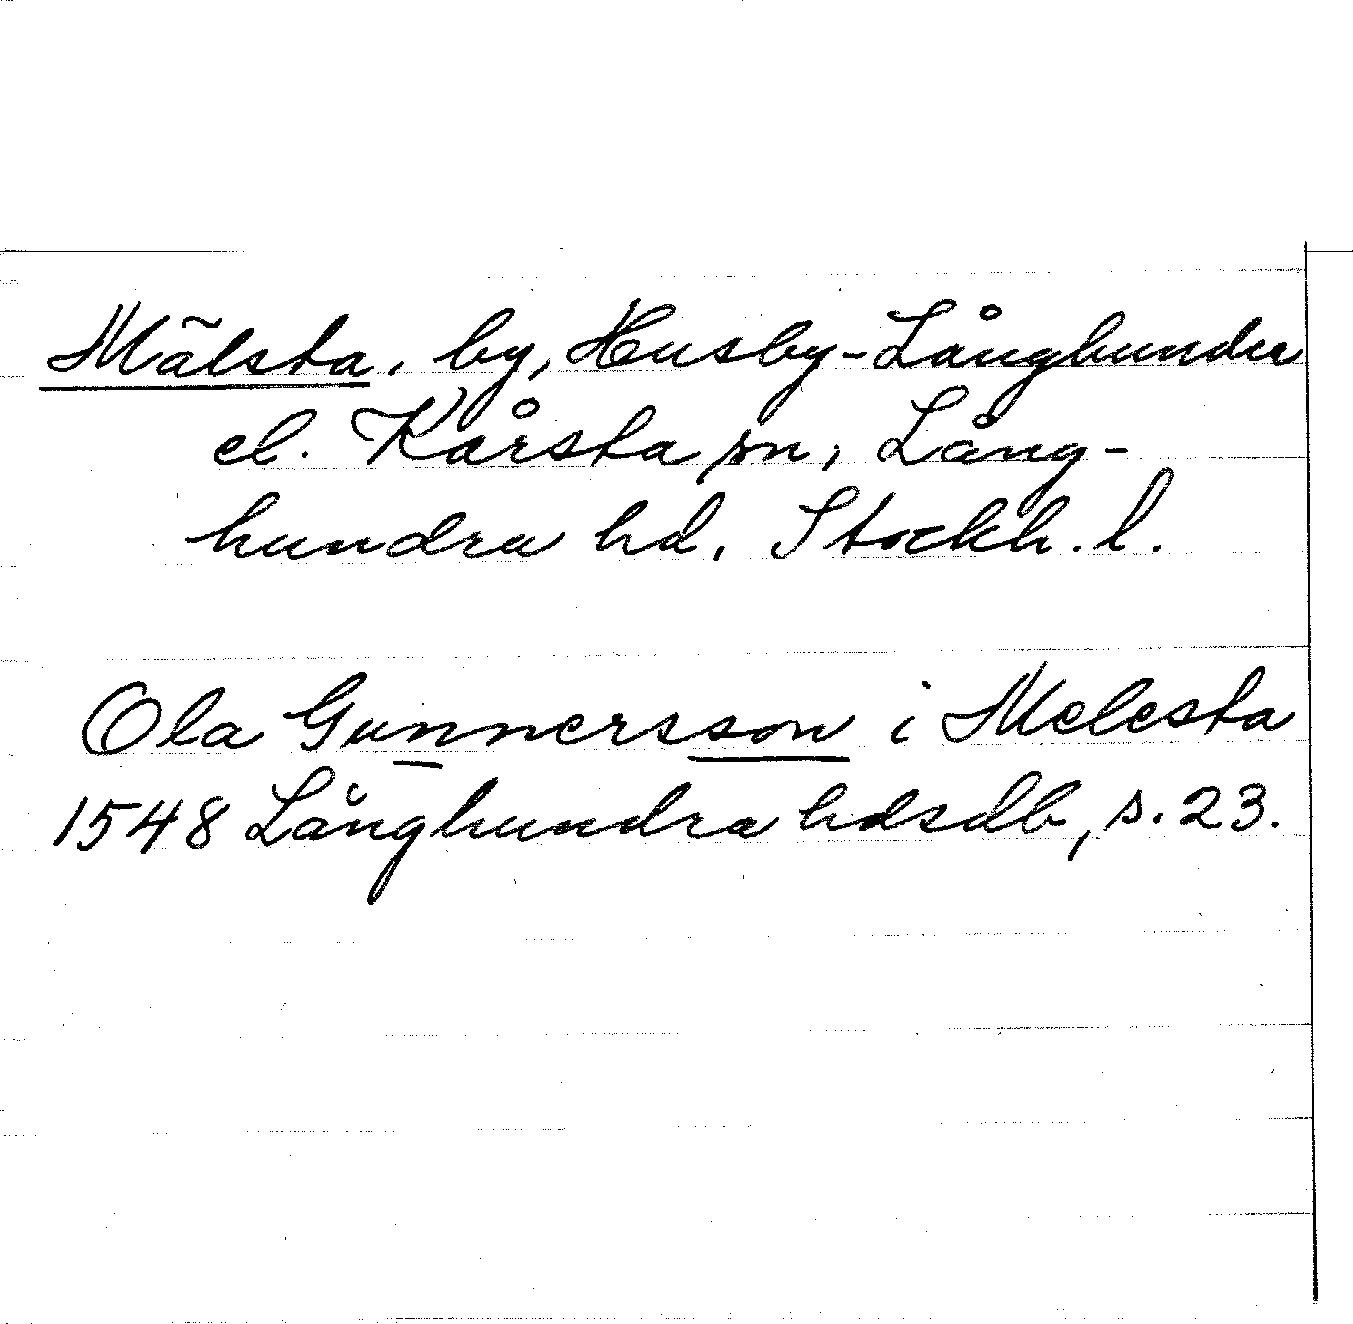 Mälsta, by, Husby-Långhundra
el. Kårsta sn, Lång-
hundra hd, Stockh. l.
Ola Gunnersson i Melesta
1548 Långhundra hdsdb, s. 23.